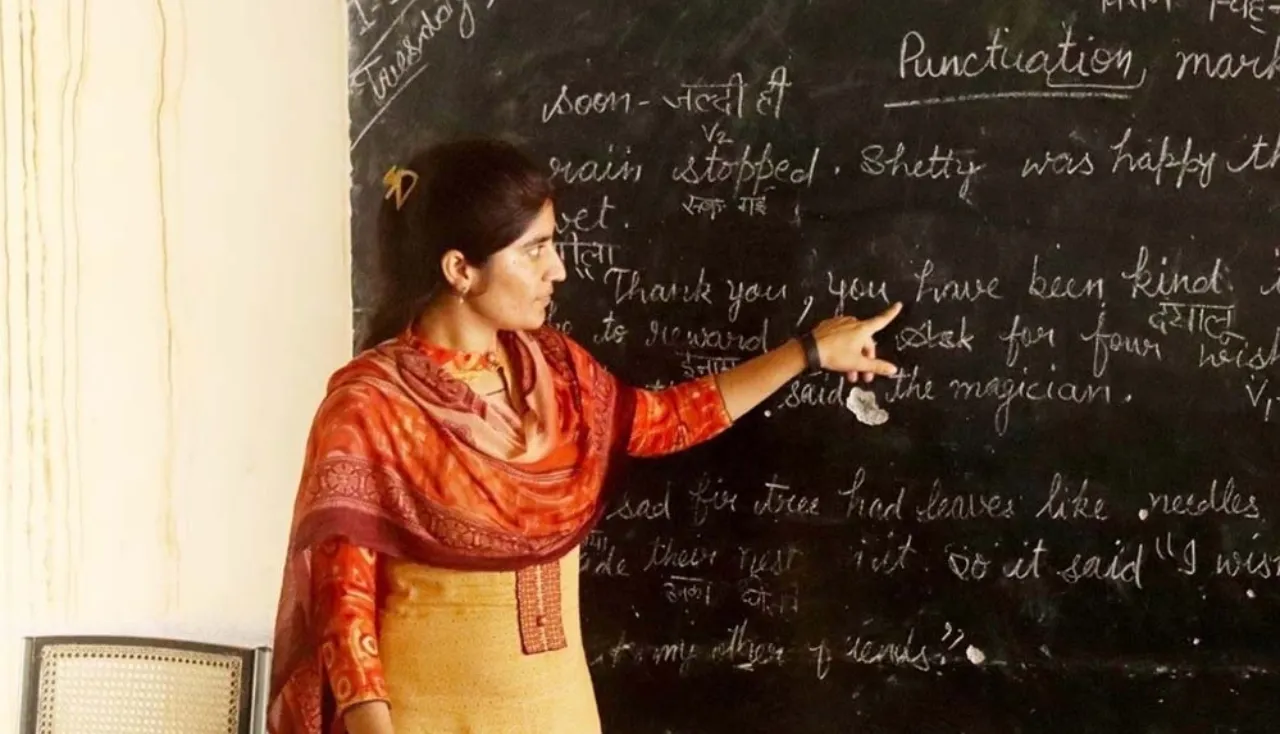 Tuesday
Punctuation mark
soon - जल्दी ही
V2
rain stopped. Shetty was happy th
रूक गई
wet.
गीला
"Thank you, you have been kind
दयालु
to reward ask for four wish
ईनाम
said the magician.
V1
sad fir tree had leaves like needles
their nest So it said "I wis
उनका
my other friends."